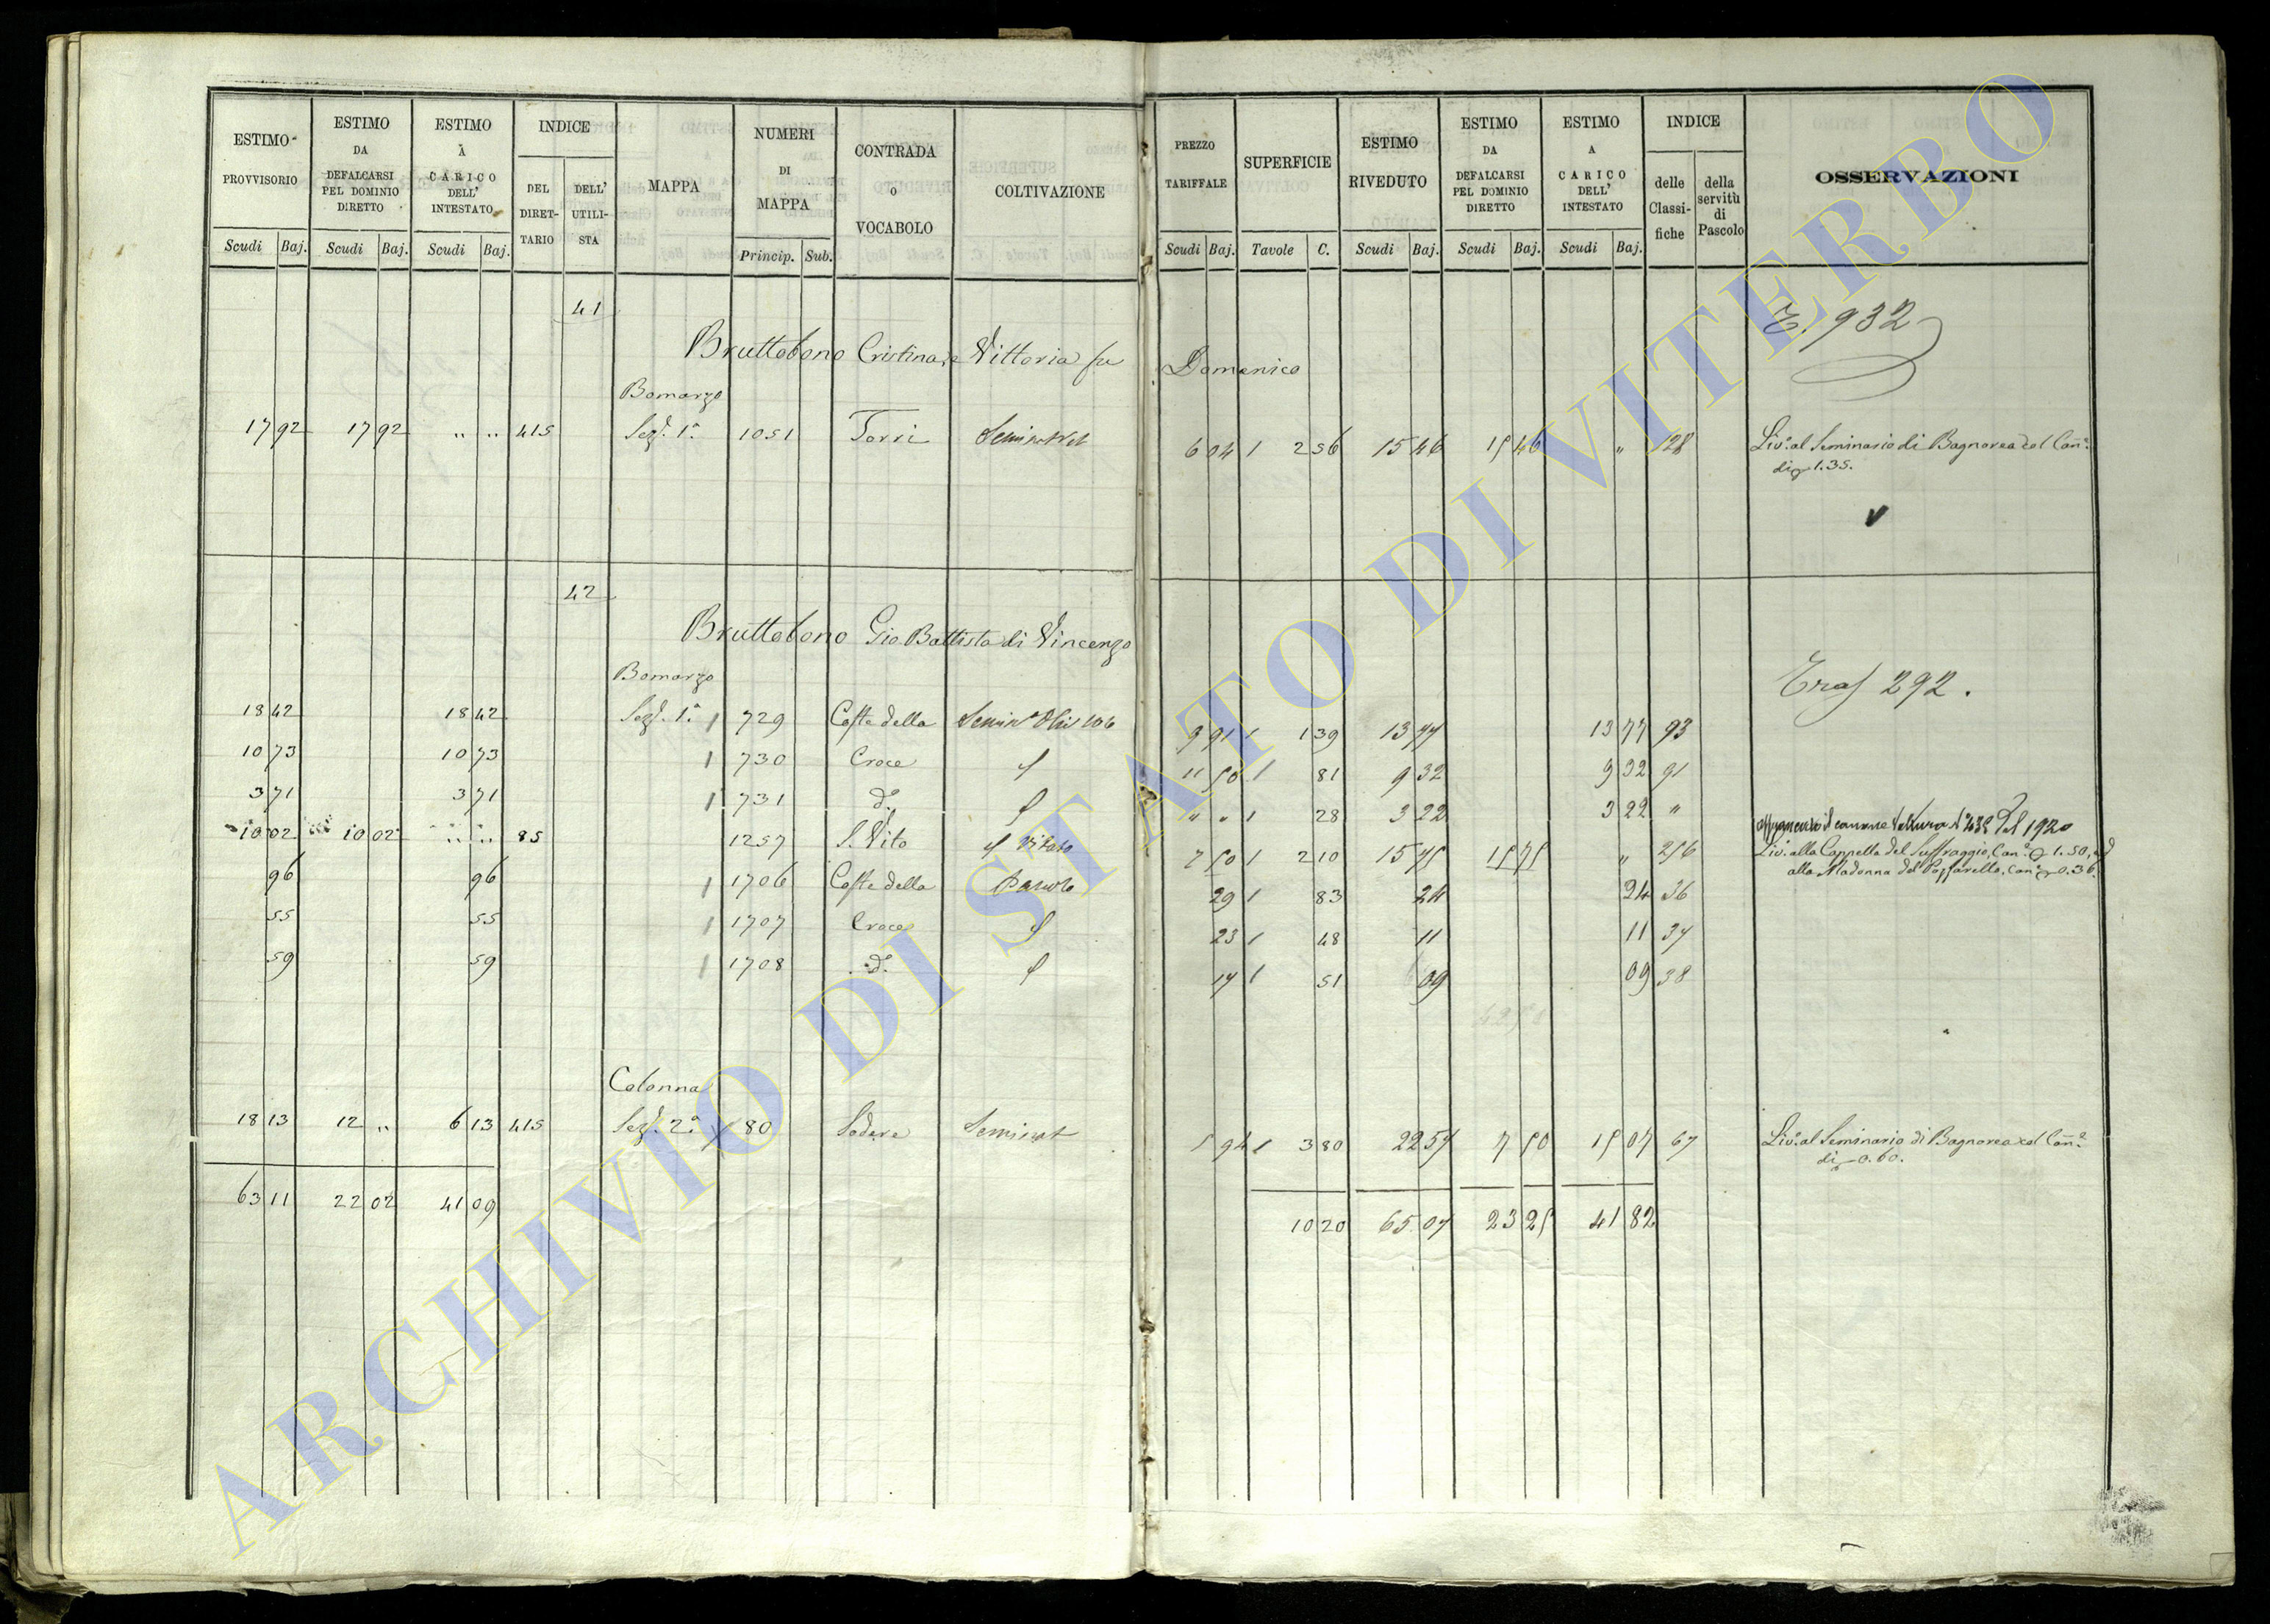 ESTIMO PROVVISORIO | ESTIMO DA DEFALCARSI PEL DOMINIO DIRETTO | ESTIMO A CARICO DELL' INTESTATO | INDICE DEL DIRETTARIO | DELL' UTILISTA | MAPPA | NUMERI DI MAPPA | CONTRADA O VOCABOLO | COLTIVAZIONE | PREZZO TARIFFALE | SUPERFICIE | ESTIMO RIVEDUTO | ESTIMO DA DEFALCARSI PEL DOMINIO DIRETTO | ESTIMO A CARICO DELL' INTESTATO | INDICE delle Classifiche | della servitù di Pascolo | OSSERVAZIONI
Scudi Baj. | Scudi Baj. | Scudi Baj. | Princip. Sub. | Scudi Baj. | Tavole C. | Scudi Baj. | Scudi Baj. | Scudi Baj.
41
E. 932
Bruttobono Cristina, e Vittoria fu Domenico
Bomarzo
17 92 | 17 92 | " " | 415 | Sez. 1a. | 1051 | Torri | Seminat | 6 04 | 1 | 2 56 | 15 46 | 15 46 | " | 128 | Livo. al Seminario di Bagnorea col Cane.
di 1.35.
V
42
Bruttobono Gio Battista di Vincenzo
Bomarzo
Tras 292.
18 42 | 18 42 | Sez. 1a. | 729 | Coste della | 9 91 | 1 | 1 39 | 13 77 | 13 77 | 93
10 73 | 10 73 | 730 | Croce | 11 50 | 1 | 81 | 9 32 | 9 32 | 91
3 71 | 3 71 | 731 | do. | " " | 1 | 28 | 3 22 | 3 22 | "
il canone Voltura No 435 del 1920
10 02 | 10 02 | " " | 85 | 1257 | S. Vito | Vitato | 7 50 | 1 | 2 10 | 15 75 | 15 75 | " | 256 | Livo. alla Cappella del Suffraggio, Cane. 1.50, ed
alla Madonna del Cane 0.36.
96 | 96 | 1706 | Coste della | Pascolo | 29 | 1 | 83 | 24 | 24 | 36
55 | 55 | 1707 | Croce | 23 | 1 | 48 | 11 | 11 | 37
59 | 59 | 1708 | do. | 17 | 1 | 51 | 09 | 09 | 38
Colonna
18 13 | 12 " | 6 13 | 415 | Sez. 2a. | 80 | Sodere | Seminat | 5 94 | 1 | 3 80 | 22 57 | 7 50 | 15 07 | 67 | Livo. al Seminario di Bagnorea col Cane.
di 0.60.
63 11 | 22 02 | 41 09 | 10 20 | 65 07 | 23 25 | 41 82
ARCHIVIO DI STATO DI VITERBO